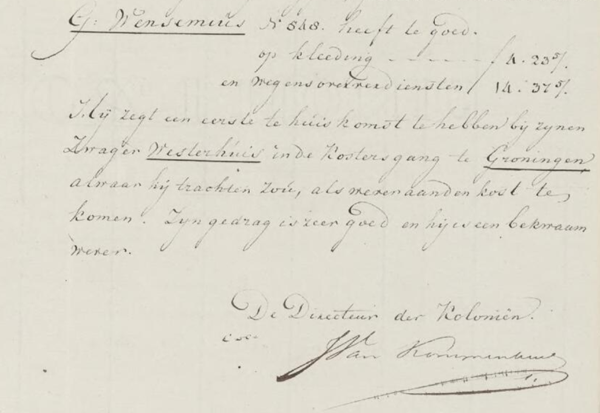 G: Wensemius N 848. heeft te goed.
op kleeding - - - - - f 4.23 5/.
en wegens oververdiensten 14.37 5/.
Hij zegt een eerste te huis komst te hebben bij zynen
Zwager Westerhuis in de Kostersgang te Groningen,
alwaar hij trachten zou, als wever aan den kost te
komen. Zyn gedrag is zeer goed en hij is een bekwaam
wever.
De Directeur der Koloniën.
J Van Konynenburg